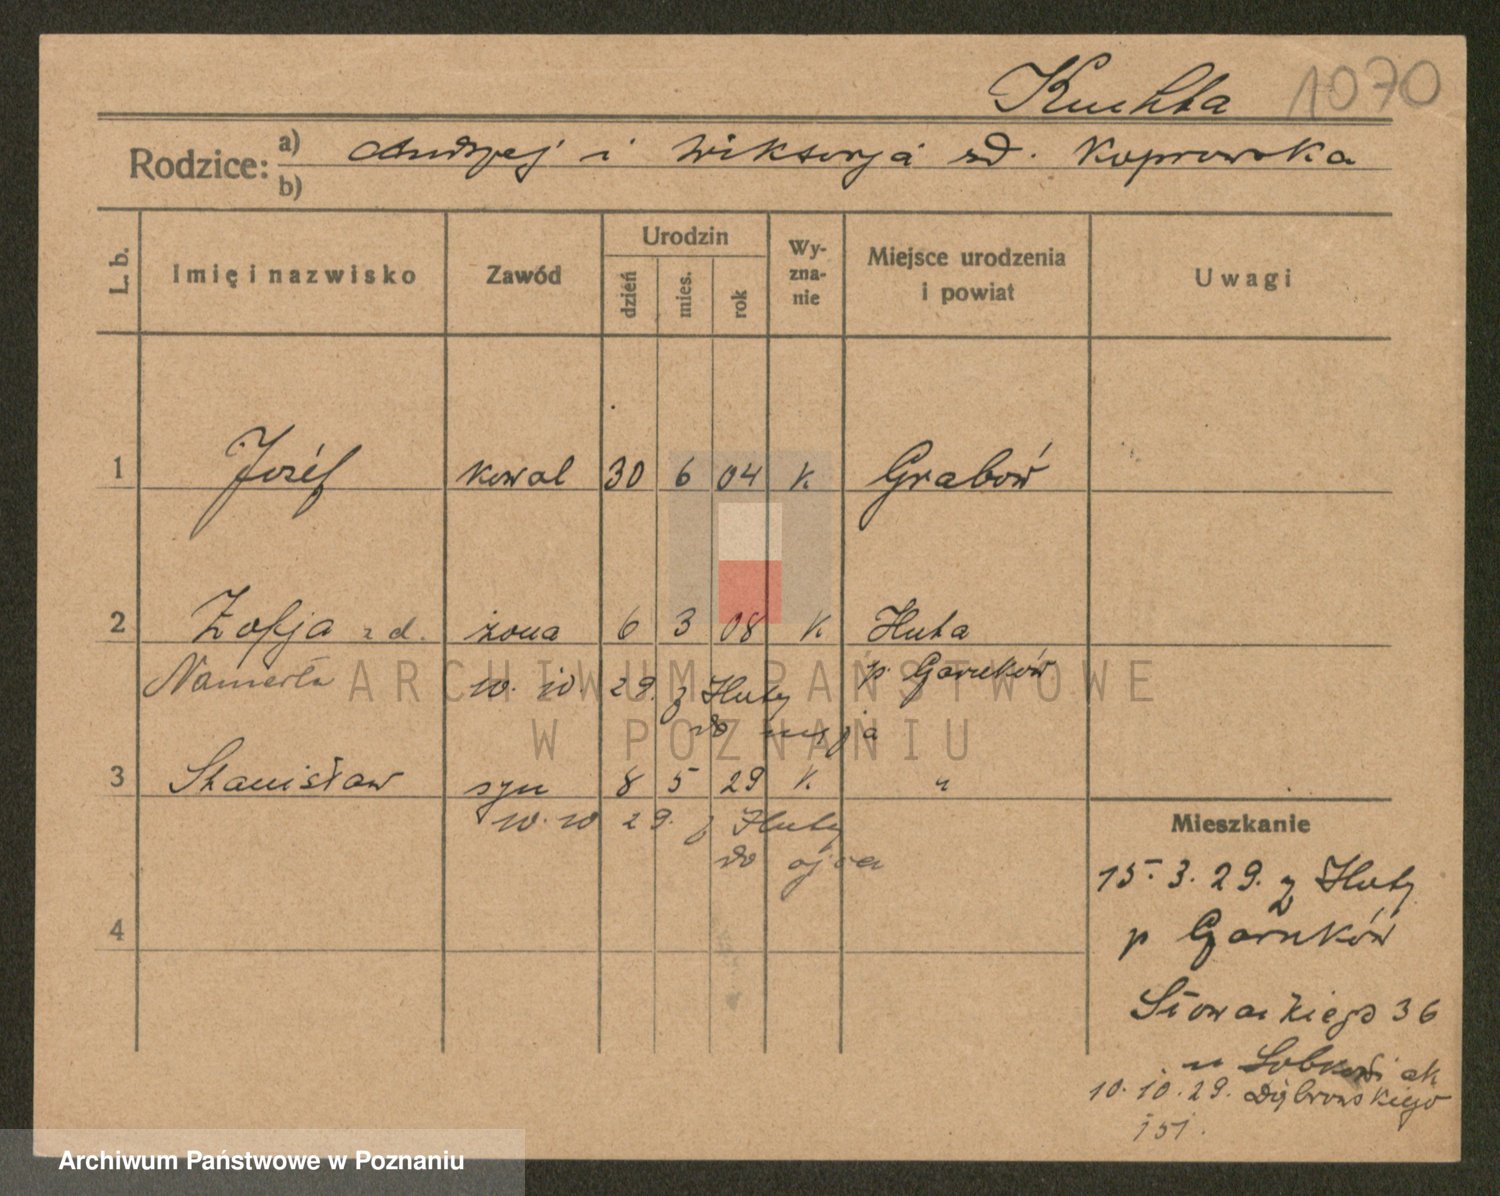 Kuchta 1070
Rodzice: a) Andrzej i Wiktorja zd. Koprowska
b)
L. b. Imię i nazwisko Zawód Urodzin dzień mies. rok Wyzna-nie Miejsce urodzenia i powiat Uwagi
1 Józef kowal 30 6 04 k Grabów
2 Zofja zd. żona 6 3 08 k Huta
10. 10. 29. z Huty p. Czarnków
do męża
3 Stanisław syn 8 5 29 k "
10. 10 29. z Huty
do ojca
4
Mieszkanie
15. 3. 29. z Huty
p Czarnków
Słowackiego 36
u
10. 10. 29. Dąbrowskiego
151.
ARCHIWUM PAŃSTWOWE
W POZNANIU
Archiwum Państwowe w Poznaniu